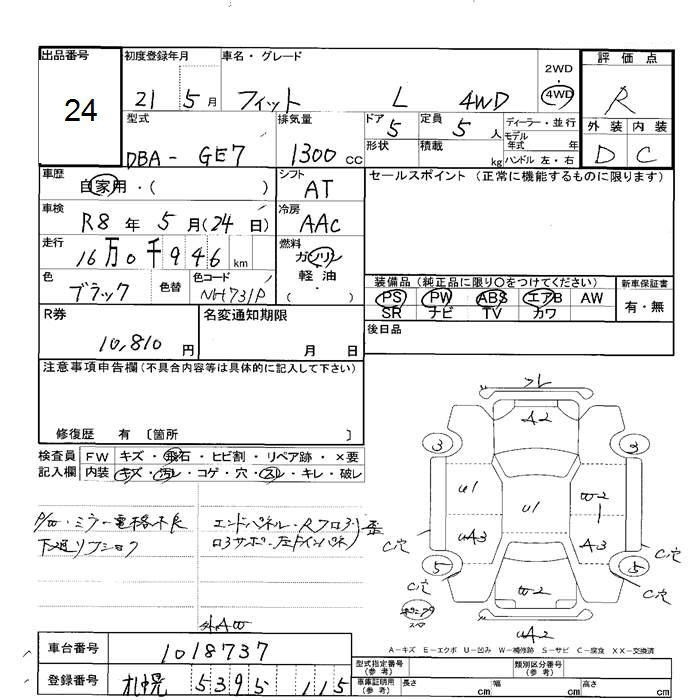 出品番号
24
初度登録年月
21 5月
車名・グレード
フィット L 4WD
2WD
・
4WD
評価点
R
外装 内装
D C
型式
DBA- GE7
排気量
1300cc
ドア 5
形状
定員 5人
積載 kg
ディーラー・並行
モデル
年式 年
ハンドル 左・右
車歴
自家用・( )
シフト
AT
セールスポイント (正常に機能するものに限ります)
車検
R8年 5月(24日)
冷房
AAC
走行
16万0千946km
燃料
ガソリン
軽油
・
( )
色
ブラック
色替
色コード
NH731P
装備品(純正品に限り○をつけてください)
PS PW ABS エアB AW
SR ナビ TV カワ
新車保証書
有・無
R券
10,810円
名変通知期限
月 日
後日品
注意事項申告欄(不具合内容等は具体的に記入して下さい)
修復歴 有 〔箇所 〕
検査員 FW キズ・飛石・ヒビ割・リペア跡・×要
記入欄 内装 キズ・汚レ・コゲ・穴・スレ・キレ・破レ
P/W・ミラー電格不良
エンドパネル・Rフロア
歪
フレ
A2
3 3
U1 U1 W2
UA3 A3
C穴 C穴
5 5
C穴 W2 C穴
UA2
外AW
車台番号
1018737
登録番号
札幌 5395 115
A-キズ E-エクボ U-凹み W-補修跡 S-サビ C-腐食 XX-交換済
型式指定番号
(参考)
類別区分番号
(参考)
車庫証明用
(参考)
長さ cm 幅 cm 高さ cm